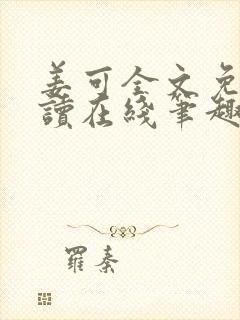 姜可全文免
讀在綫筆趣
羅秦